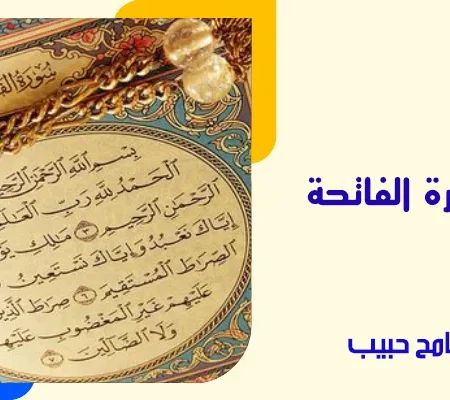 سُورَةُ الفَا
بِسْمِ اللَّهِ الرَّحْمَٰنِ الرَّحِيمِ
الْحَمْدُ لِلَّهِ رَبِّ الْعَالَ
الرَّحْمَٰنِ الرَّحِيمِ ٣ مَالِكِ يَوْ
إِيَّاكَ نَعْبُدُ وَإِيَّاكَ نَسْتَعِينُ
الصِّرَاطَ الْمُسْتَقِيمَ ٦ صِرَاطَ الَّذِينَ
عَلَيْهِمْ غَيْرِ الْمَغْضُوبِ عَلَيْهِمْ
وَلَا الضَّالِّينَ ٧
رة الفاتحة
امح حبيب